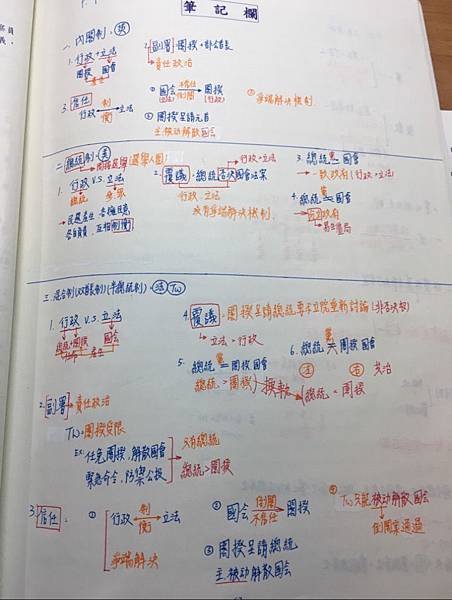 筆記欄
一、內閣制：英
1. 行政+立法
閣揆 國會
2. 副署：閣揆+部會首長
→責任政治
3. 信任
行政 制衡 立法
① 國會 不信任 倒閣 閣揆
(立法) (行政)
② 閣揆呈請元首
主.被動解散國會
③ 爭端解決機制
二.總統制：美(選舉人團)
→間接民選
1. 行政 V.S. 立法
總統 參.眾
→民選產生，各擁民意
各自負責，互相制衡
2. 覆議：總統否決國會法案
→行政→立法
行政 立法
沒有爭端解決機制
3. 總統 黨= 國會
→一致政府(行政+立法)
4. 總統 黨≠ 國會
→分立政府
→易生僵局
三.混合制(双首長制)(半總統制)：法 TW
1. 行政 V.S. 立法
總統+閣揆 國會
2. 副署→責任政治
TW=閣揆受限
Ex: 任免閣揆.解散國會
緊急命令.防禦公投
→只有總統
總統>閣揆
3. 信任：
① 行政 制衡 立法
爭端解決
② 國會 倒閣 不信任 閣揆
③ 閣揆呈請總統
主.被動解散國會
④ TW只能被動解散國會
→倒閣案通過
4. 覆議：閣揆呈請總統要求立院重新討論(非否決權)
→立法>行政
5. 總統 黨= 閣揆國會
總統>閣揆
6. 總統 黨≠ 閣揆國會
法 右 左 共治
換軌 總統<閣揆